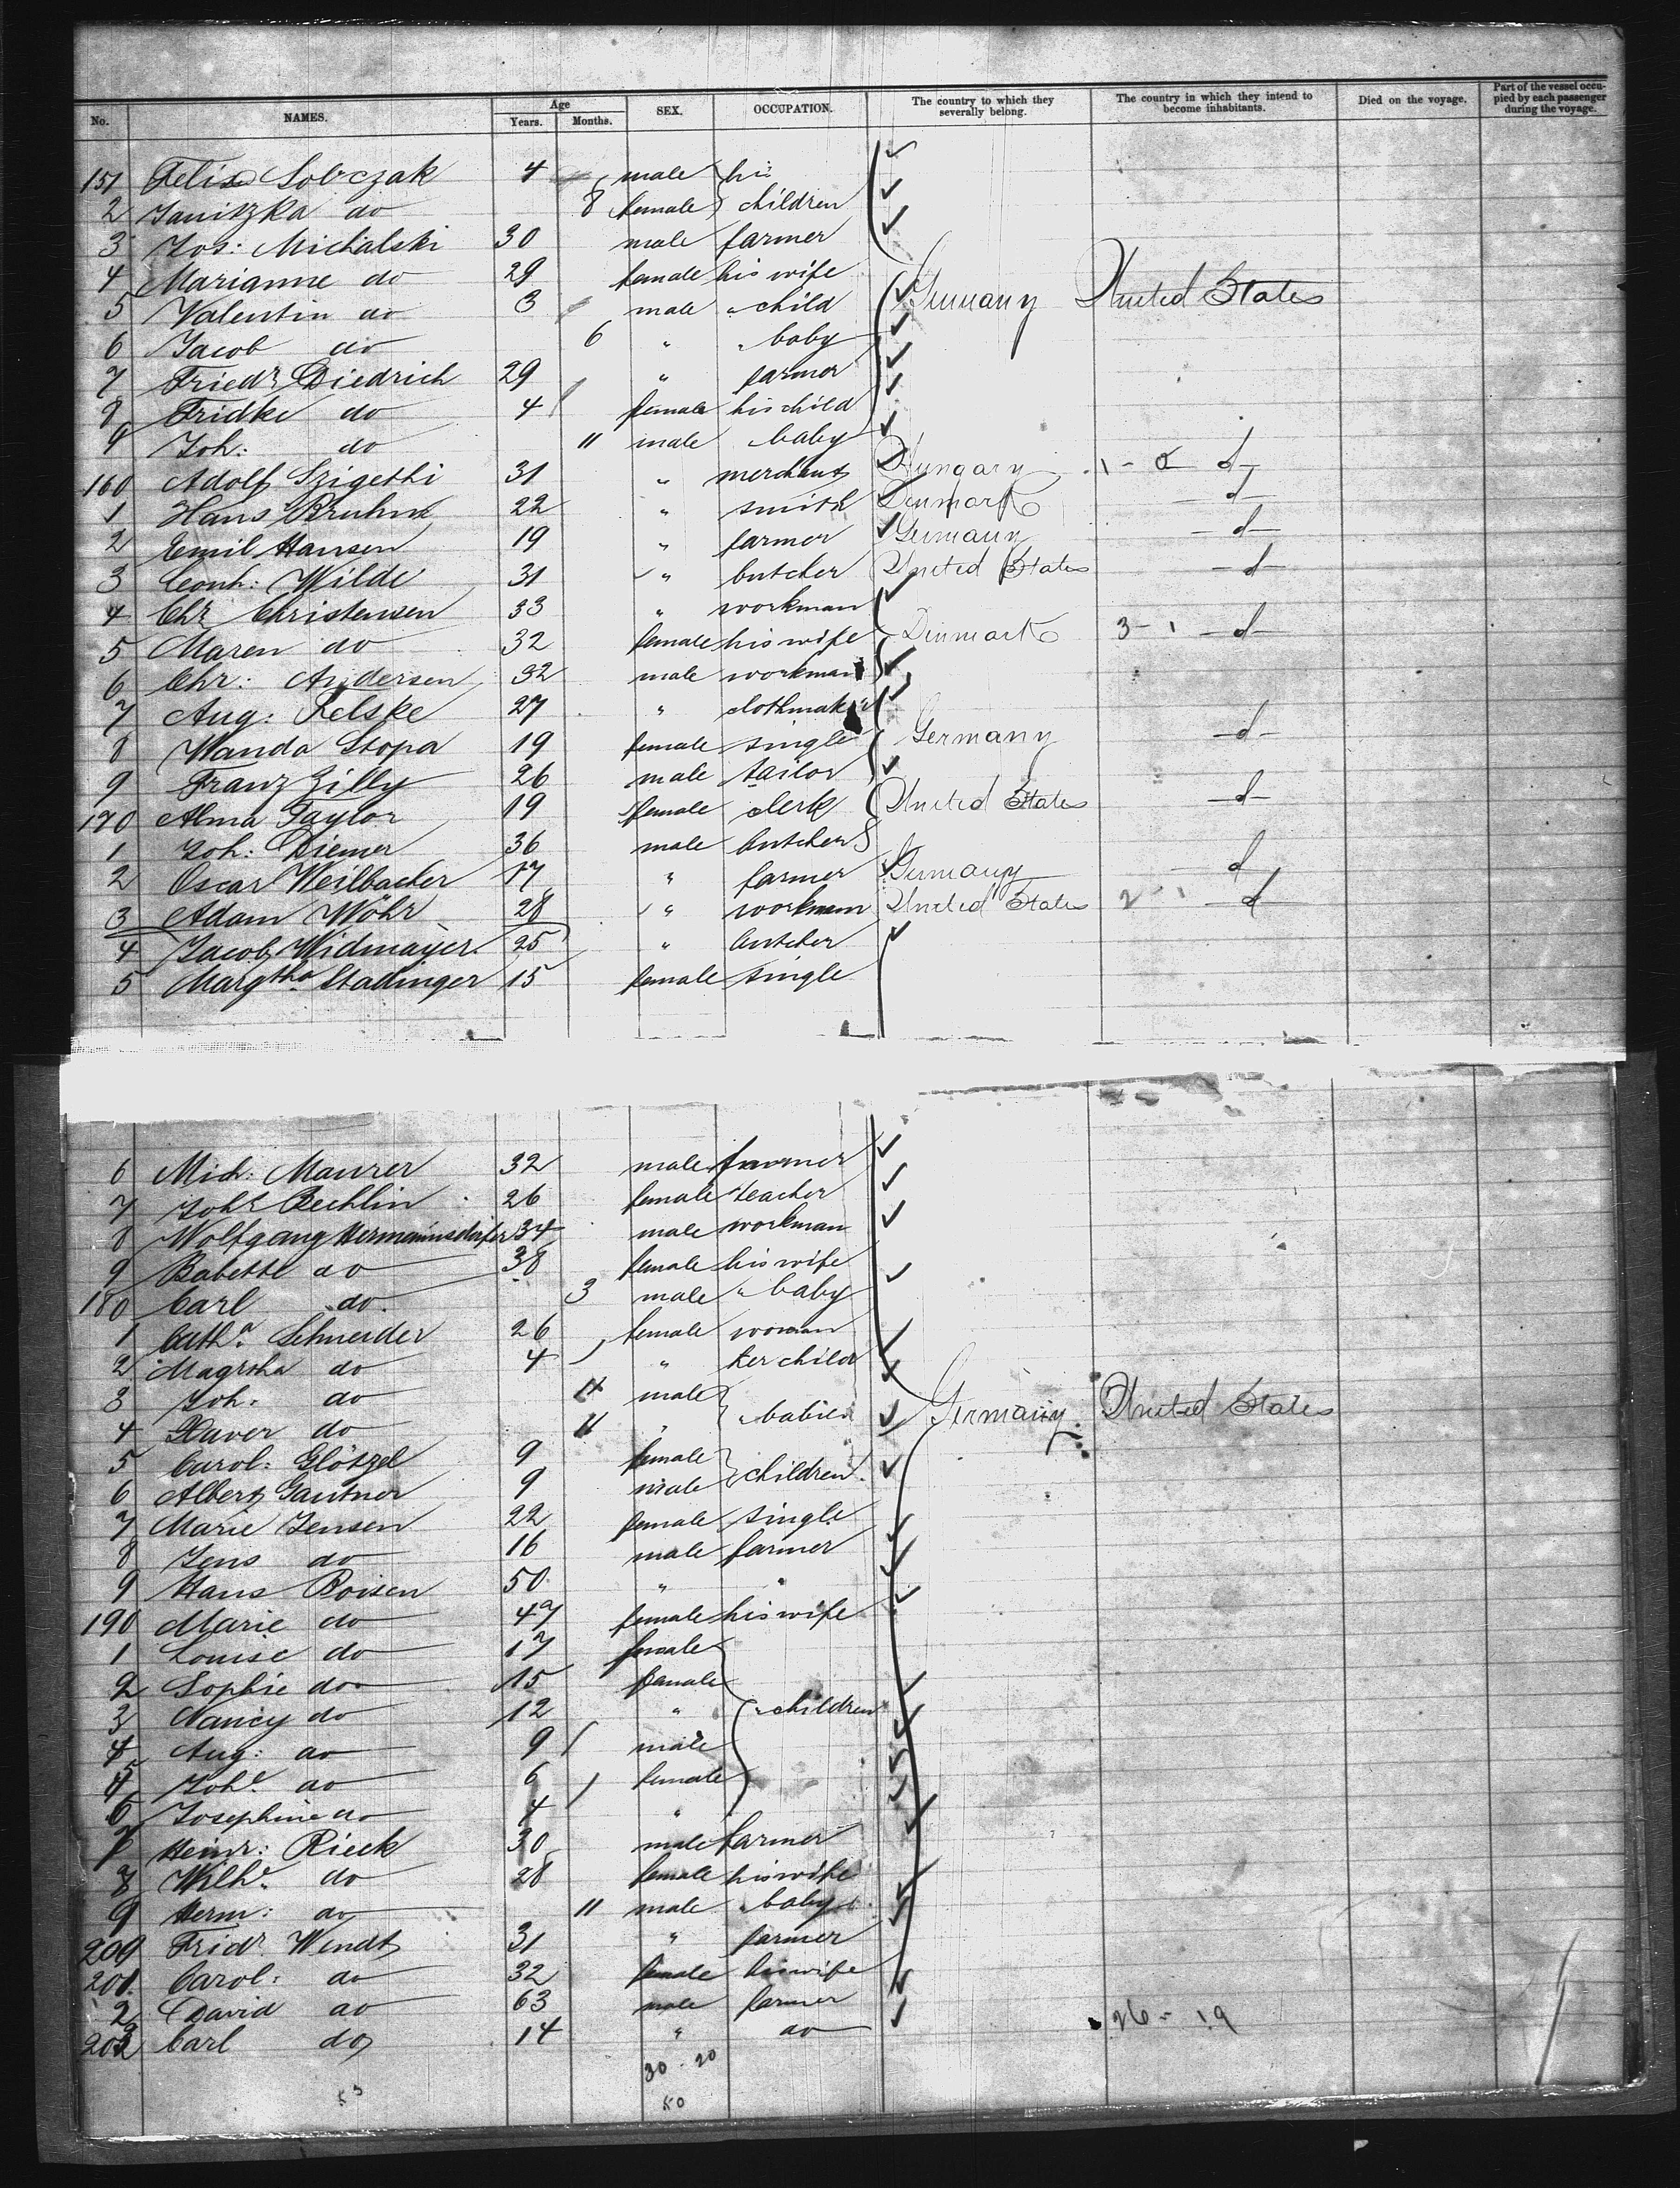 No. NAMES. Age Years. Months. SEX. OCCUPATION. The country to which they severally belong. The country in which they intend to become inhabitants. Died on the voyage. Part of the vessel occupied by each passenger during the voyage.
151 Felix Sobczak 4 male his
2 Janitzka do 8 female children
3 Jos: Michalski 30 male farmer
4 Marianne do 29 female his wife
5 Valentin do 3 male " child Germany United States
6 Jacob do 6 " " baby
7 Friedr. Diedrich 29 " farmer
8 Fridke do 4 female his child
9 Joh: do 11 male " baby
160 Adolf Szigethi 31 " merchant Hungary 1 - 0 d
1 Hans Bruhn 22 " smith Denmark d
2 Emil Hansen 19 " farmer Germany d
3 Conh: Wilde 31 " butcher United States d
4 Chr. Christensen 33 " workman
5 Maren do 32 female his wife Dinmark 3 - 1 d
6 Chr: Andersen 32 male workman
7 Aug: Relske 27 " clothmaker
8 Wanda Stopa 19 female single Germany d
9 Franz Zilly 26 male tailor
170 Alma Taylor 19 female clerk United States d
1 Joh: Diemer 36 male butcher
2 Oscar Weilbacher 17 " farmer Germany d
3 Adam Wöhr 28 " workman United States 2 - 1 d
4 Jacob Widmayer 25 " butcher
5 Margtha Stadinger 15 female single
6 Mich: Maurer 32 male farmer
7 Johe Bechlin 26 female teacher
8 Wolfgang Hermannsdörfer 34 male workman
9 Babette do 38 female his wife
180 Carl do 3 male " baby
1 Catha. Schneider 26 female woman
2 Magrtha do 4 " her child
3 Joh. do 11 male
4 Xaver do 11 " " babies Germany United States
5 Carol: Glötzel 9 female
6 Albert Gautner 9 male children
7 Marie Jensen 22 female single
8 Jens do 16 male farmer
9 Hans Boisen 50 " "
190 Marie do 47 female his wife
1 Louise do 17 female
2 Sophie do 15 female
3 Nancy do 12 " " children
4 Aug: do 9 male
5 Johe. do 6 female
6 Josephine do 4 "
7 Heinr: Rieck 30 male farmer
8 Wilhe. do 28 female his wife
9 Herm: do 11 male " baby
200 Fridr. Wendt 31 " farmer
201. Carol: do 32 female his wife
2 David do 63 male farmer
203 Carl do 14 " do 26 - 19
30 - 20
53 50